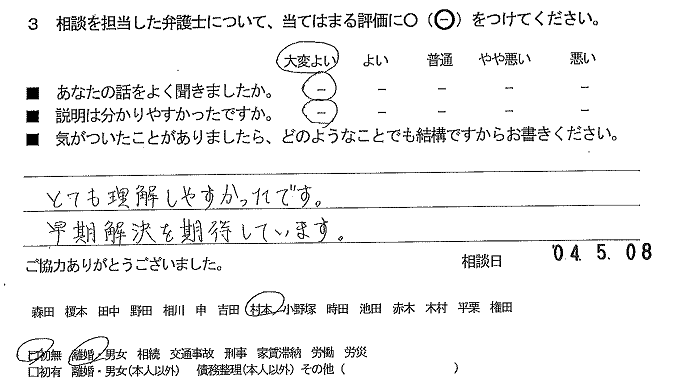 3 相談を担当した弁護士について、当てはまる評価に○（⊖）をつけてください。
大変よい よい 普通 やや悪い 悪い
■ あなたの話をよく聞きましたか。 − − − − −
■ 説明は分かりやすかったですか。 − − − − −
■ 気がついたことがありましたら、どのようなことでも結構ですからお書きください。
とても理解しやすかったです。
早期解決を期待しています。
ご協力ありがとうございました。 相談日 '04. 5. 08
森田 榎本 田中 野田 相川 申 吉田 村本 小野塚 時田 池田 赤木 木村 平栗 権田
□初無 離婚・男女 相続 交通事故 刑事 家賃滞納 労働 労災
□初有 離婚・男女(本人以外) 債務整理(本人以外) その他（ ）